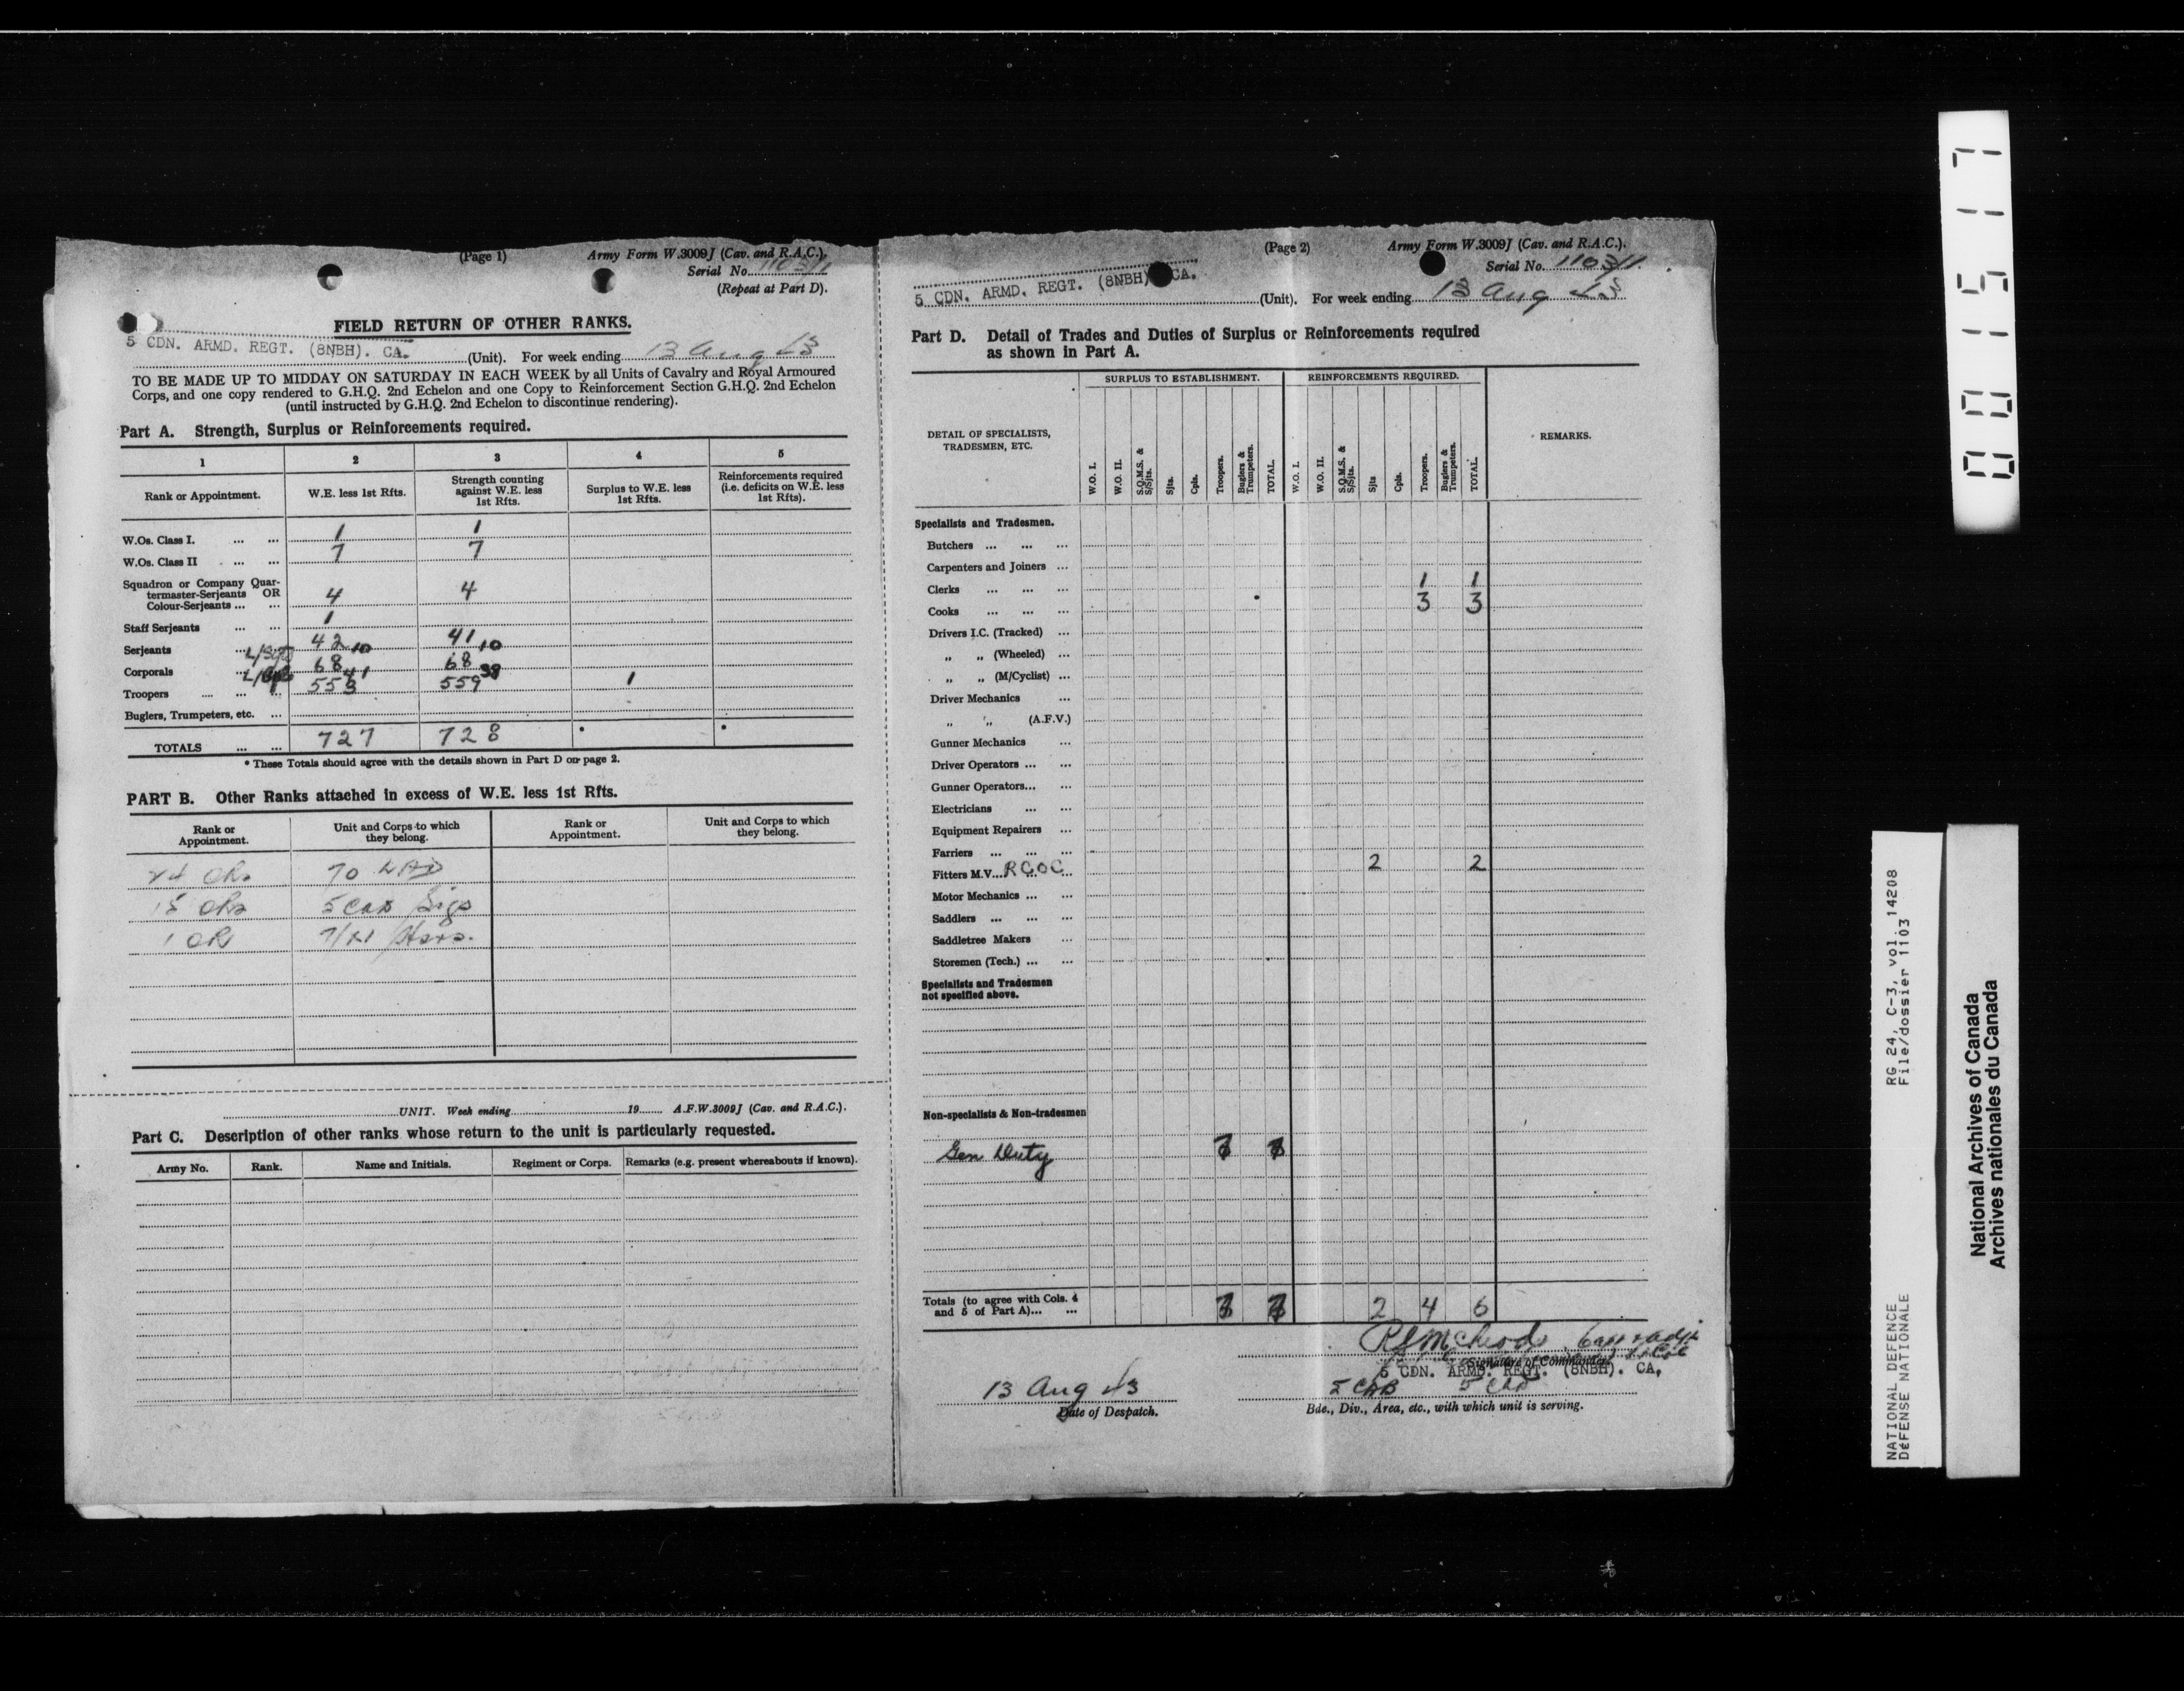 (Page 1)
Army Form W.3009J (Cav. and R.A.C.).
Serial No. 1103/1
(Repeat at Part D).
FIELD RETURN OF OTHER RANKS.
5 CDN. ARMD. REGT. (8NBH). CA. (Unit). For week ending 13 Aug 43
TO BE MADE UP TO MIDDAY ON SATURDAY IN EACH WEEK by all Units of Cavalry and Royal Armoured
Corps, and one copy rendered to G.H.Q. 2nd Echelon and one Copy to Reinforcement Section G.H.Q. 2nd Echelon
(until instructed by G.H.Q. 2nd Echelon to discontinue rendering).
Part A. Strength, Surplus or Reinforcements required.
1 2 3 4 5
Rank or Appointment. W.E. less 1st Rfts. Strength counting against W.E. less 1st Rfts. Surplus to W.E. less 1st Rfts. Reinforcements required (i.e. deficits on W.E. less 1st Rfts).
W.Os. Class I. ... ... 1 1
W.Os. Class II ... ... 7 7
Squadron or Company Quar-
termaster-Serjeants OR
Colour-Serjeants ... ... 4 4
Staff Serjeants ... ... 1
Serjeants ... L/Sgts 42 10 41 10
Corporals ... 68 41 68 38
Troopers ... ... ... 553 559 1
Buglers, Trumpeters, etc. ...
TOTALS ... ... 727 728 * *
* These Totals should agree with the details shown in Part D on page 2.
PART B. Other Ranks attached in excess of W.E. less 1st Rfts.
Rank or Appointment. Unit and Corps to which they belong. Rank or Appointment. Unit and Corps to which they belong.
24 ORs 70 LAD
15 ORs 5 CAB Sigs
1 OR
UNIT. Week ending 19 A.F.W.3009J (Cav. and R.A.C.).
Part C. Description of other ranks whose return to the unit is particularly requested.
Army No. Rank. Name and Initials. Regiment or Corps. Remarks (e.g. present whereabouts if known).
(Page 2)
Army Form W.3009J (Cav. and R.A.C.).
Serial No. 1103/1
5 CDN. ARMD. REGT. (8NBH) CA. (Unit). For week ending 13 Aug 43
Part D. Detail of Trades and Duties of Surplus or Reinforcements required
as shown in Part A.
SURPLUS TO ESTABLISHMENT. REINFORCEMENTS REQUIRED.
DETAIL OF SPECIALISTS, TRADESMEN, ETC.
W.O. I. W.O. II. S.Q.M.S. & S/Sjts. Sjts. Cpls. Troopers. Buglers & Trumpeters. TOTAL. W.O. I. W.O. II. S.Q.M.S. & S/Sjts. Sjts Cpls. Troopers. Buglers & Trumpeters. TOTAL. REMARKS.
Specialists and Tradesmen.
Butchers ... ... ...
Carpenters and Joiners ...
Clerks ... ... ... 1 1
Cooks ... ... ... 3 3
Drivers I.C. (Tracked) ...
„ „ (Wheeled) ...
„ „ (M/Cyclist) ...
Driver Mechanics ...
„ „ (A.F.V.)
Gunner Mechanics ...
Driver Operators ... ...
Gunner Operators... ...
Electricians ... ...
Equipment Repairers ...
Farriers ... ... ...
Fitters M.V... RCOC ... 2 2
Motor Mechanics ... ...
Saddlers ... ... ...
Saddletree Makers ...
Storemen (Tech.) ... ...
Specialists and Tradesmen
not specified above.
Non-specialists & Non-tradesmen
Gen Duty 7 7
Totals (to agree with Cols. 4
and 5 of Part A)... ... 7 7 2 4 6
Signature of Commander.
5 CDN. ARMD. REGT. (8NBH). CA,
13 Aug 43
Date of Despatch.
5 CAB 5 CAD
Bde., Div., Area, etc., with which unit is serving.
001517
RG 24, C-3, vol. 14208
File/dossier 1103
NATIONAL DEFENCE
DéFENSE NATIONALE
National Archives of Canada
Archives nationales du Canada